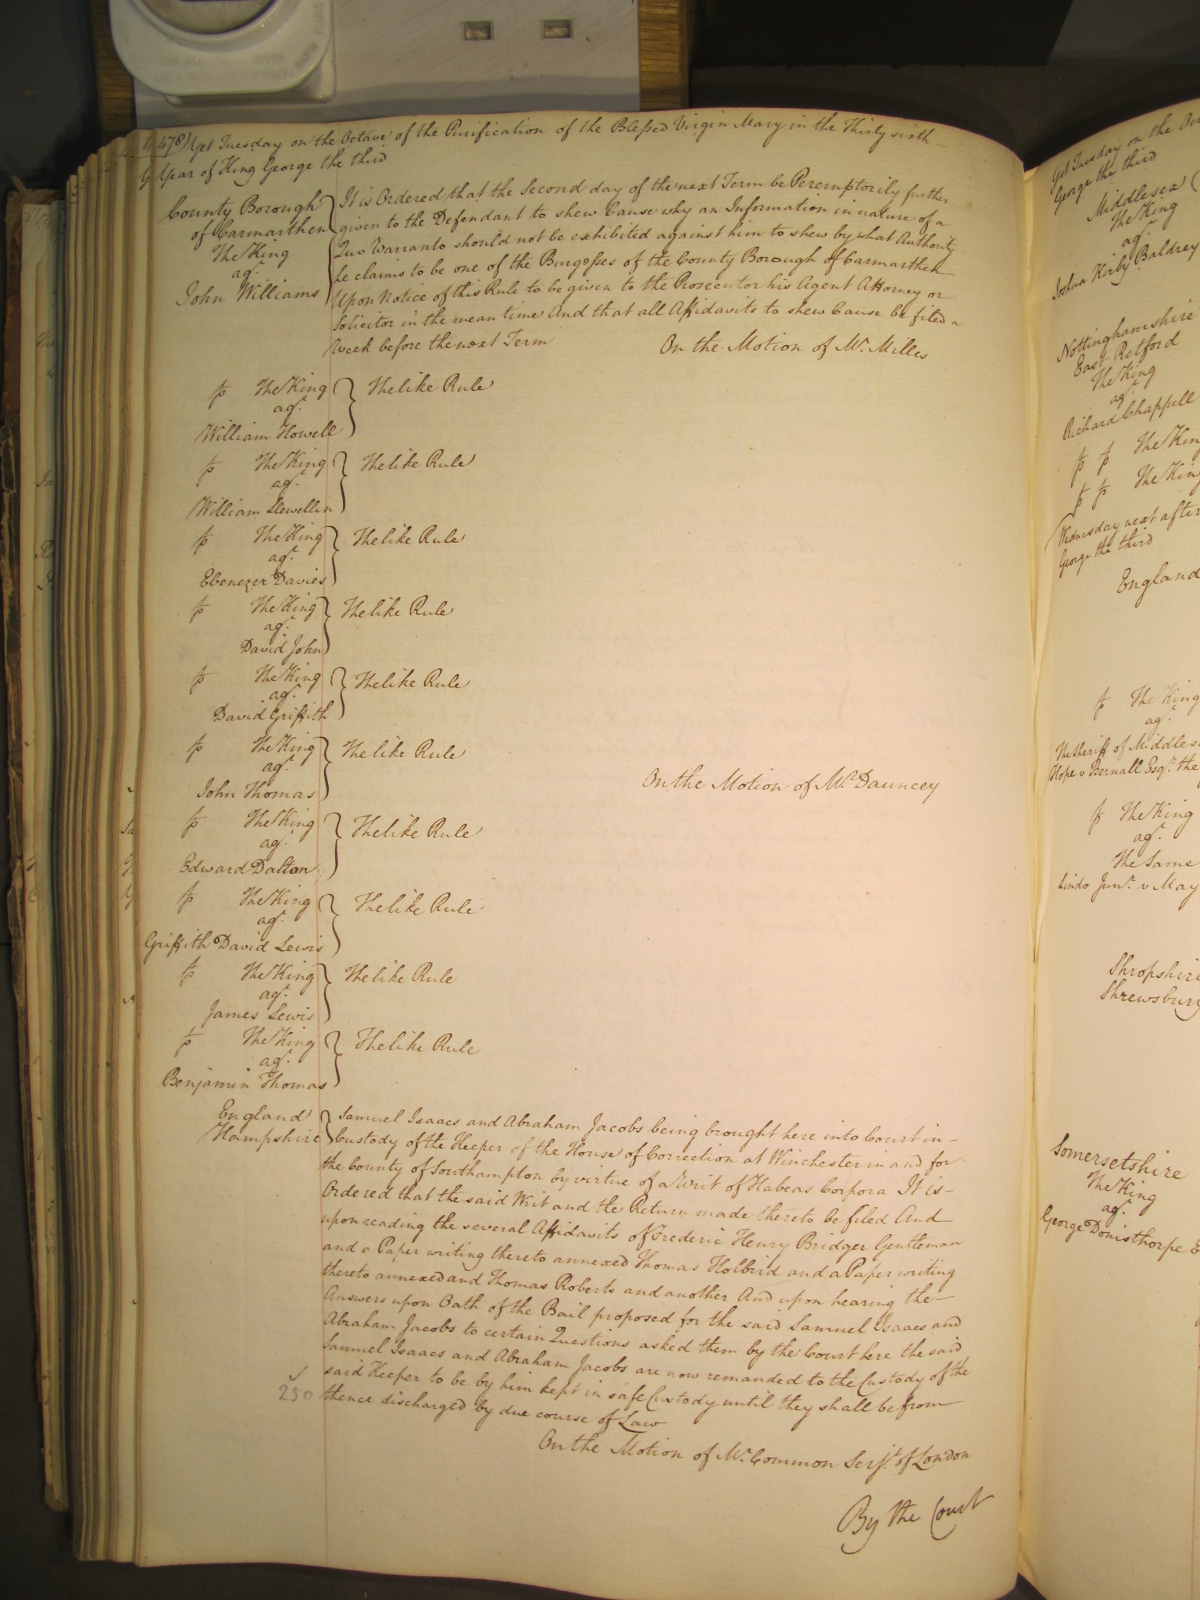 478) Yet Tuesday on the Octave of the Purification of the Blessed Virgin Mary in the Thirty sixth
Year of King George the third
County Borough
of Carmarthen
The King
agt.
John Williams
It is Ordered that the Second day of the next Term be Peremptorily further
given to the Defendant to shew Cause why an Information in nature of a
Quo Warranto should not be exhibited against him to shew by what Authority
he claims to be one of the Burgesses of the County Borough of Carmarthen
Upon Notice of this Rule to be given to the Prosecutor his Agent Attorney or
Solicitor in the mean time And that all Affidavits to shew Cause be filed a
Week before the next Term
On the Motion of Mr. Milles
The King
agt.
William Howell
The like Rule
The King
agt.
William Llewellin
The like Rule
The King
agt.
Ebenezer Davies
The like Rule
The King
agt.
David John
The like Rule
The King
agt.
David Griffith
The like Rule
The King
agt.
John Thomas
The like Rule
On the Motion of Mr. Dauncey
The King
agt.
Edward Dalton
The like Rule
The King
agt.
Griffith David Lewis
The like Rule
The King
agt.
James Lewis
The like Rule
The King
agt.
Benjamin Thomas
The like Rule
England
Hampshire
Samuel Isaacs and Abraham Jacobs being brought here into Court in
Custody of the Keeper of the House of Correction at Winchester in and for
the County of Southampton by virtue of a Writ of Habeas Corpora It is
Ordered that the said Writ and the Return made thereto be filed And
upon reading the several Affidavits of Frederic Henry Bridger Gentleman
and a Paper writing thereto annexed Thomas Holbird and a Paper writing
thereto annexed and Thomas Roberts and another And upon hearing the
Answers upon Oath of the Bail proposed for the said Samuel Isaacs and
Abraham Jacobs to certain Questions asked them by the Court here the said
Samuel Isaacs and Abraham Jacobs are now remanded to the Custody of the
said Keeper to be by him kept in safe Custody until they shall be from
250
thence discharged by due course of Law
On the Motion of Mr. Common Serjt. of London
By the Court
Yet Tuesday on the
George the third
Middlesex
The King
agt.
Joshua Kirby Baldrey
Nottinghamshire
East Retford
The King
agt.
Richard Chappell
The King
The King
Wednesday next after
George the third
England
The King
agt.
The Sheriff of Middlesex
Hope v Bernall Esqr. the
The King
agt.
The Same
Lindo Junr. v May
Shropshire
Shrewsbury
Somersetshire
The King
agt.
George Donisthorpe